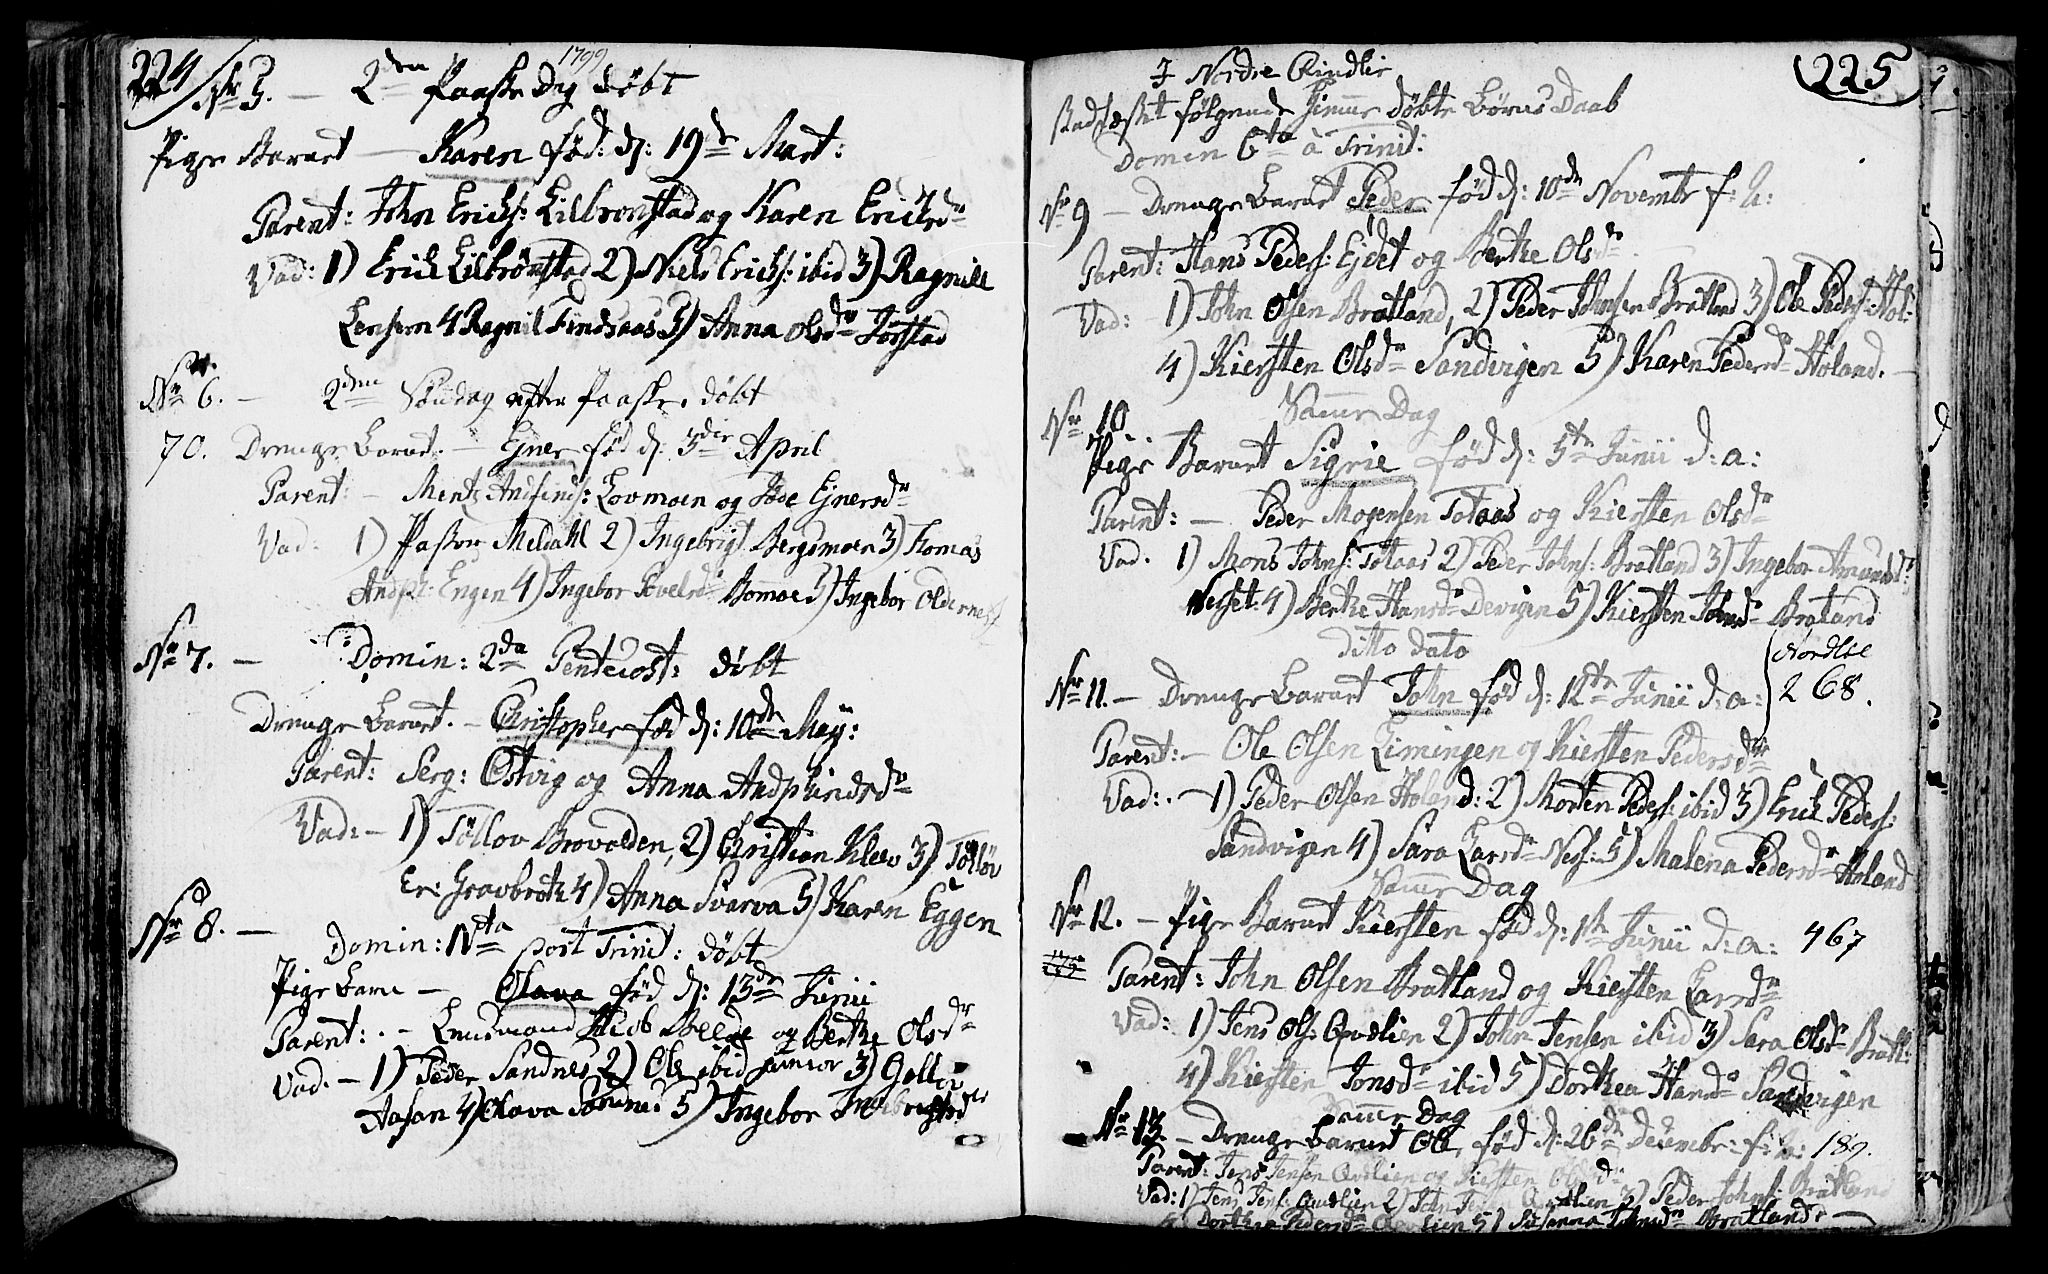 224
1799
Nr 5. — 2den Paaske Dag døbt
Pige Barnet — Karen fød: d: 19de Mart:
Parent: John Erichs: Lilbronstad og Karen Ericksdr
Vad: 1) Erick Lilbrönstad 2) Niels Erichs: ibid 3) Ragnill
Lensem 4 Ragnil Findsaas 5) Anna Olsdr Jørstad
Nr 6. — 2den Søndag efter Paaske, døbt
70. Drenge Barnet. — Ejner fød d: 3die April
Parent: — Mentz Andfinds: Lovmoen og Ejnersdr
Vad. 1) Pastor Meldahl 2) Ingebrigt Bergsmoen 3) Tomas
Andph: Engen 4) Ingebor Bomoe 5) Ingebor Oldernes
Nr 7. — Domin: 2da Pentecost: døbt
Drenge Barnet. — Christopher fød d: 10de Maij:
Parent: Serg: Östvig og Anna Andphindsdr
Vad: — 1) Töllov Brovolden, 2) Christian Kleev 3) Tölløv
Er: Gravbrøth 4) Anna Svarva 5) Karen Eggen
Nr 8. — Domin: post Trinit: døbt
Pige Barn — Olava fød d: 13de Junii
Parent: — Lendsmand Jacob og Berthe Olsdr
Vad. — 1) Peder Sandnes 2) Ole ibid junior 3)
Aasan 4) Olava 5) Ingebor Ingebrigtsdr
225
I Nordre Rindlie
Stadfæstet følgende hjemme døbte Børns Daab
Domin 6ta à Trinit:
Nr 9 — Drenge Barnet Peder fød d: 10de Novembr f: A:
Parent: Hans Peders: Ejdet og Berthe Olsdr
Vad: 1) John Olsen Bratland, 2) Peder Johnsen Bratland 3) Ole Peders: Hol:
4) Kiersten Olsdr Sandvigen 5) Karen Pedersdr Holand. —
Nr 10 Samme Dag
Pige Barnet Sigrie fød d: 5te Junii d: a:
Parent: — Peder Mogensen Totaas og Kiersten Olsdr
Vad. 1) Mons Johns: Totaas 2) Peder Johns: Bratland 3) Ingebor
Nesset: 4) Berthe Hansdr Devigen 5) Kiersten Johnsdr Bratland
ditto dato
Nr 11. — Drenge Barnet John fød d: 12te Junii d: a:
Nordlie
268.
Parent: — Ole Olsen Limingen og Kiersten Pedersdr
Vad: . — 1) Peder Olsen Holand: 2) Morten Peders: ibid 3) Erik Peders:
Sandvigen 4) Sara Larsdr Ness: 5) Malena Pedersdr Holand
Samme Dag
Nr 12. — Pige Barnet Kiersten fød d: 1te Junii d: a: 467
Parent: John Olsen Bratland og Kiersten Larsdr
Vad: 1) Jens Ols: Qvelien 2) John Jensen ibid 3) Sara Olsdr Bratl:
4) Kiersten Jonsdr ibid 5) Dorthea Hansdr Sandvigen
Samme Dag
Nr 13. — Drenge Barnet Ole, fød d: 26de Decembr: f: A: 189.
Parent: Jens Jensen Qvelien og Kiersten Olsdr
Vad: 1) Jens Jens: Qvelien 2) John Jensen Qvelien 3) Peder Johns: Bratland
4) Dorthea Pedersdr Qvelien 5) Susanna Johnsdr Bratland. —